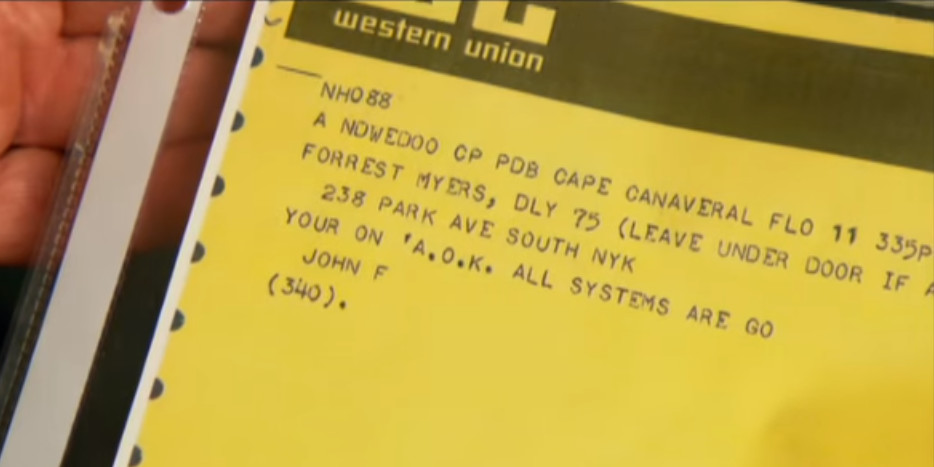 western union
NH088
A NDWEDOO CP PDB CAPE CANAVERAL FLO 11 335P
FORREST MYERS, DLY 75 (LEAVE UNDER DOOR IF A
238 PARK AVE SOUTH NYK
YOUR ON 'A.O.K. ALL SYSTEMS ARE GO
JOHN F
(340).